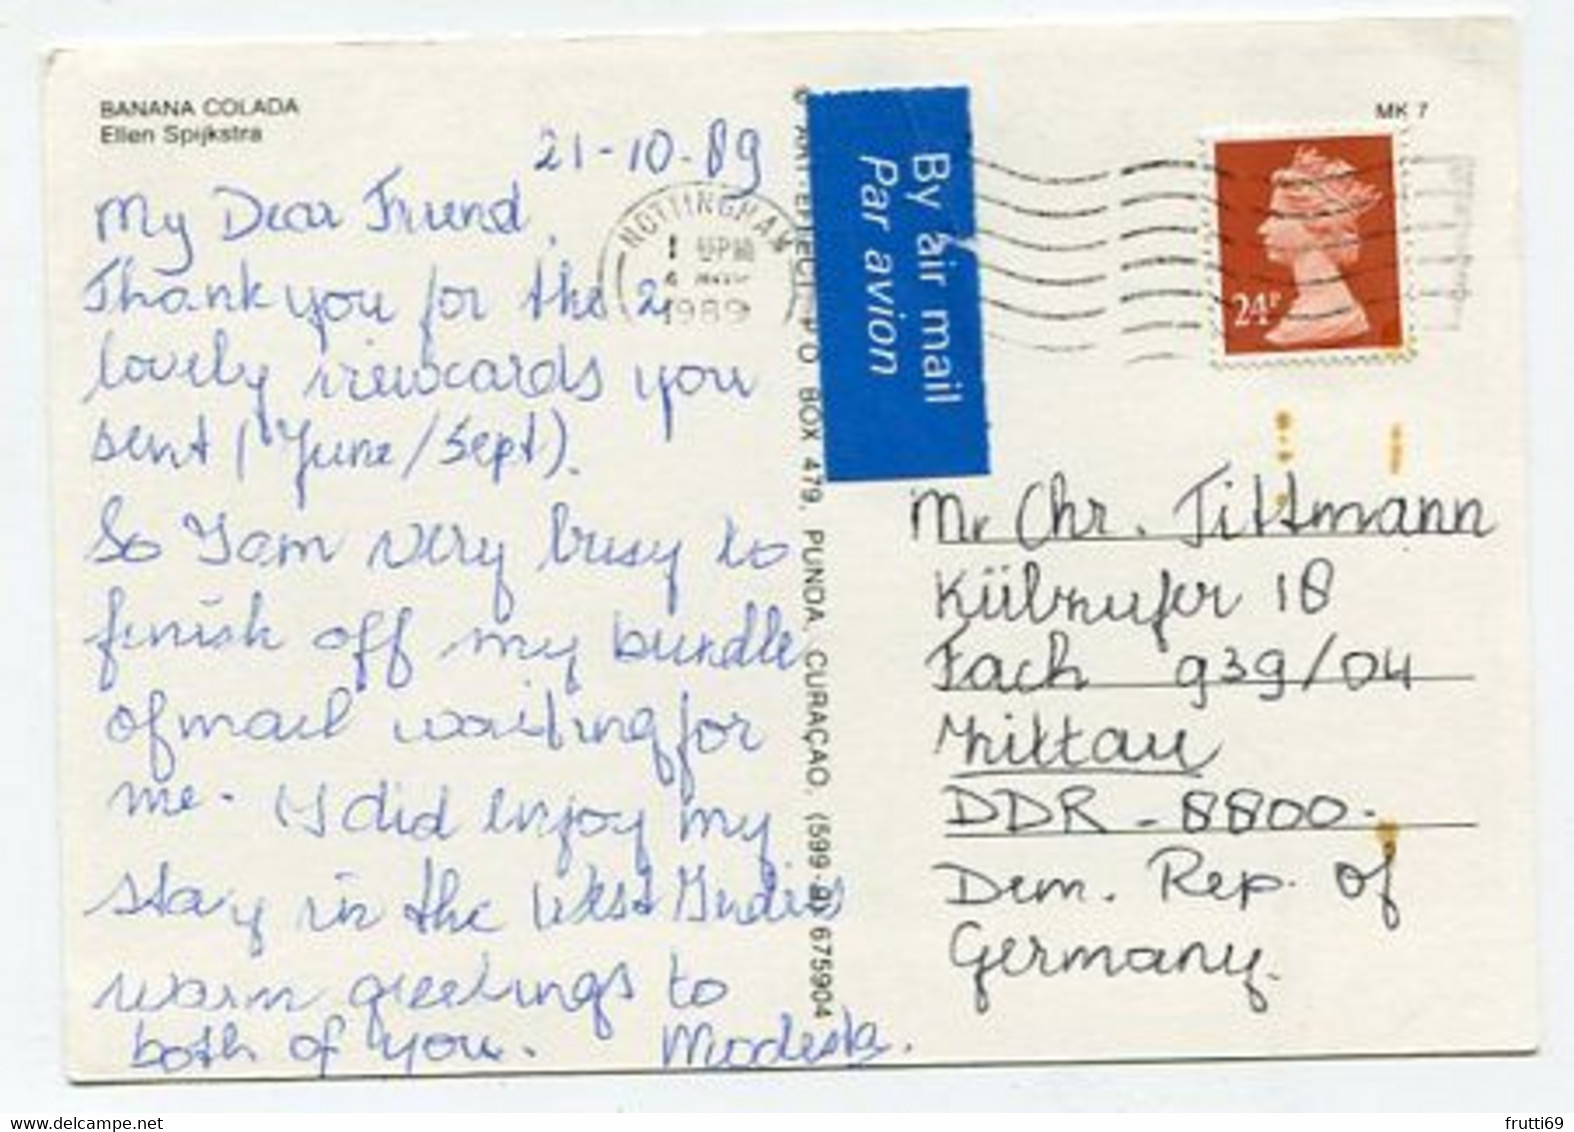 BANANA COLADA
Ellen Spijkstra
21-10-89
My Dear Friend,
Thank you for the 2
lovely viewcards you
sent (June/Sept).
So I am very busy to
finish off my bundle
of mail waiting for
me. I did enjoy my
stay in the West Indies
warm greetings to
both of you. Modesta.
NOTTINGHAM
1989
PO BOX 479, PUNDA, CURAÇAO, (599-9) 675904
By air mail
Par avion
MK 7
24P
Mr Chr. Tittmann
Külzufer 18
Fach 939/04
Zittau
DDR - 8800.
Dem. Rep. of
Germany.
frutti69